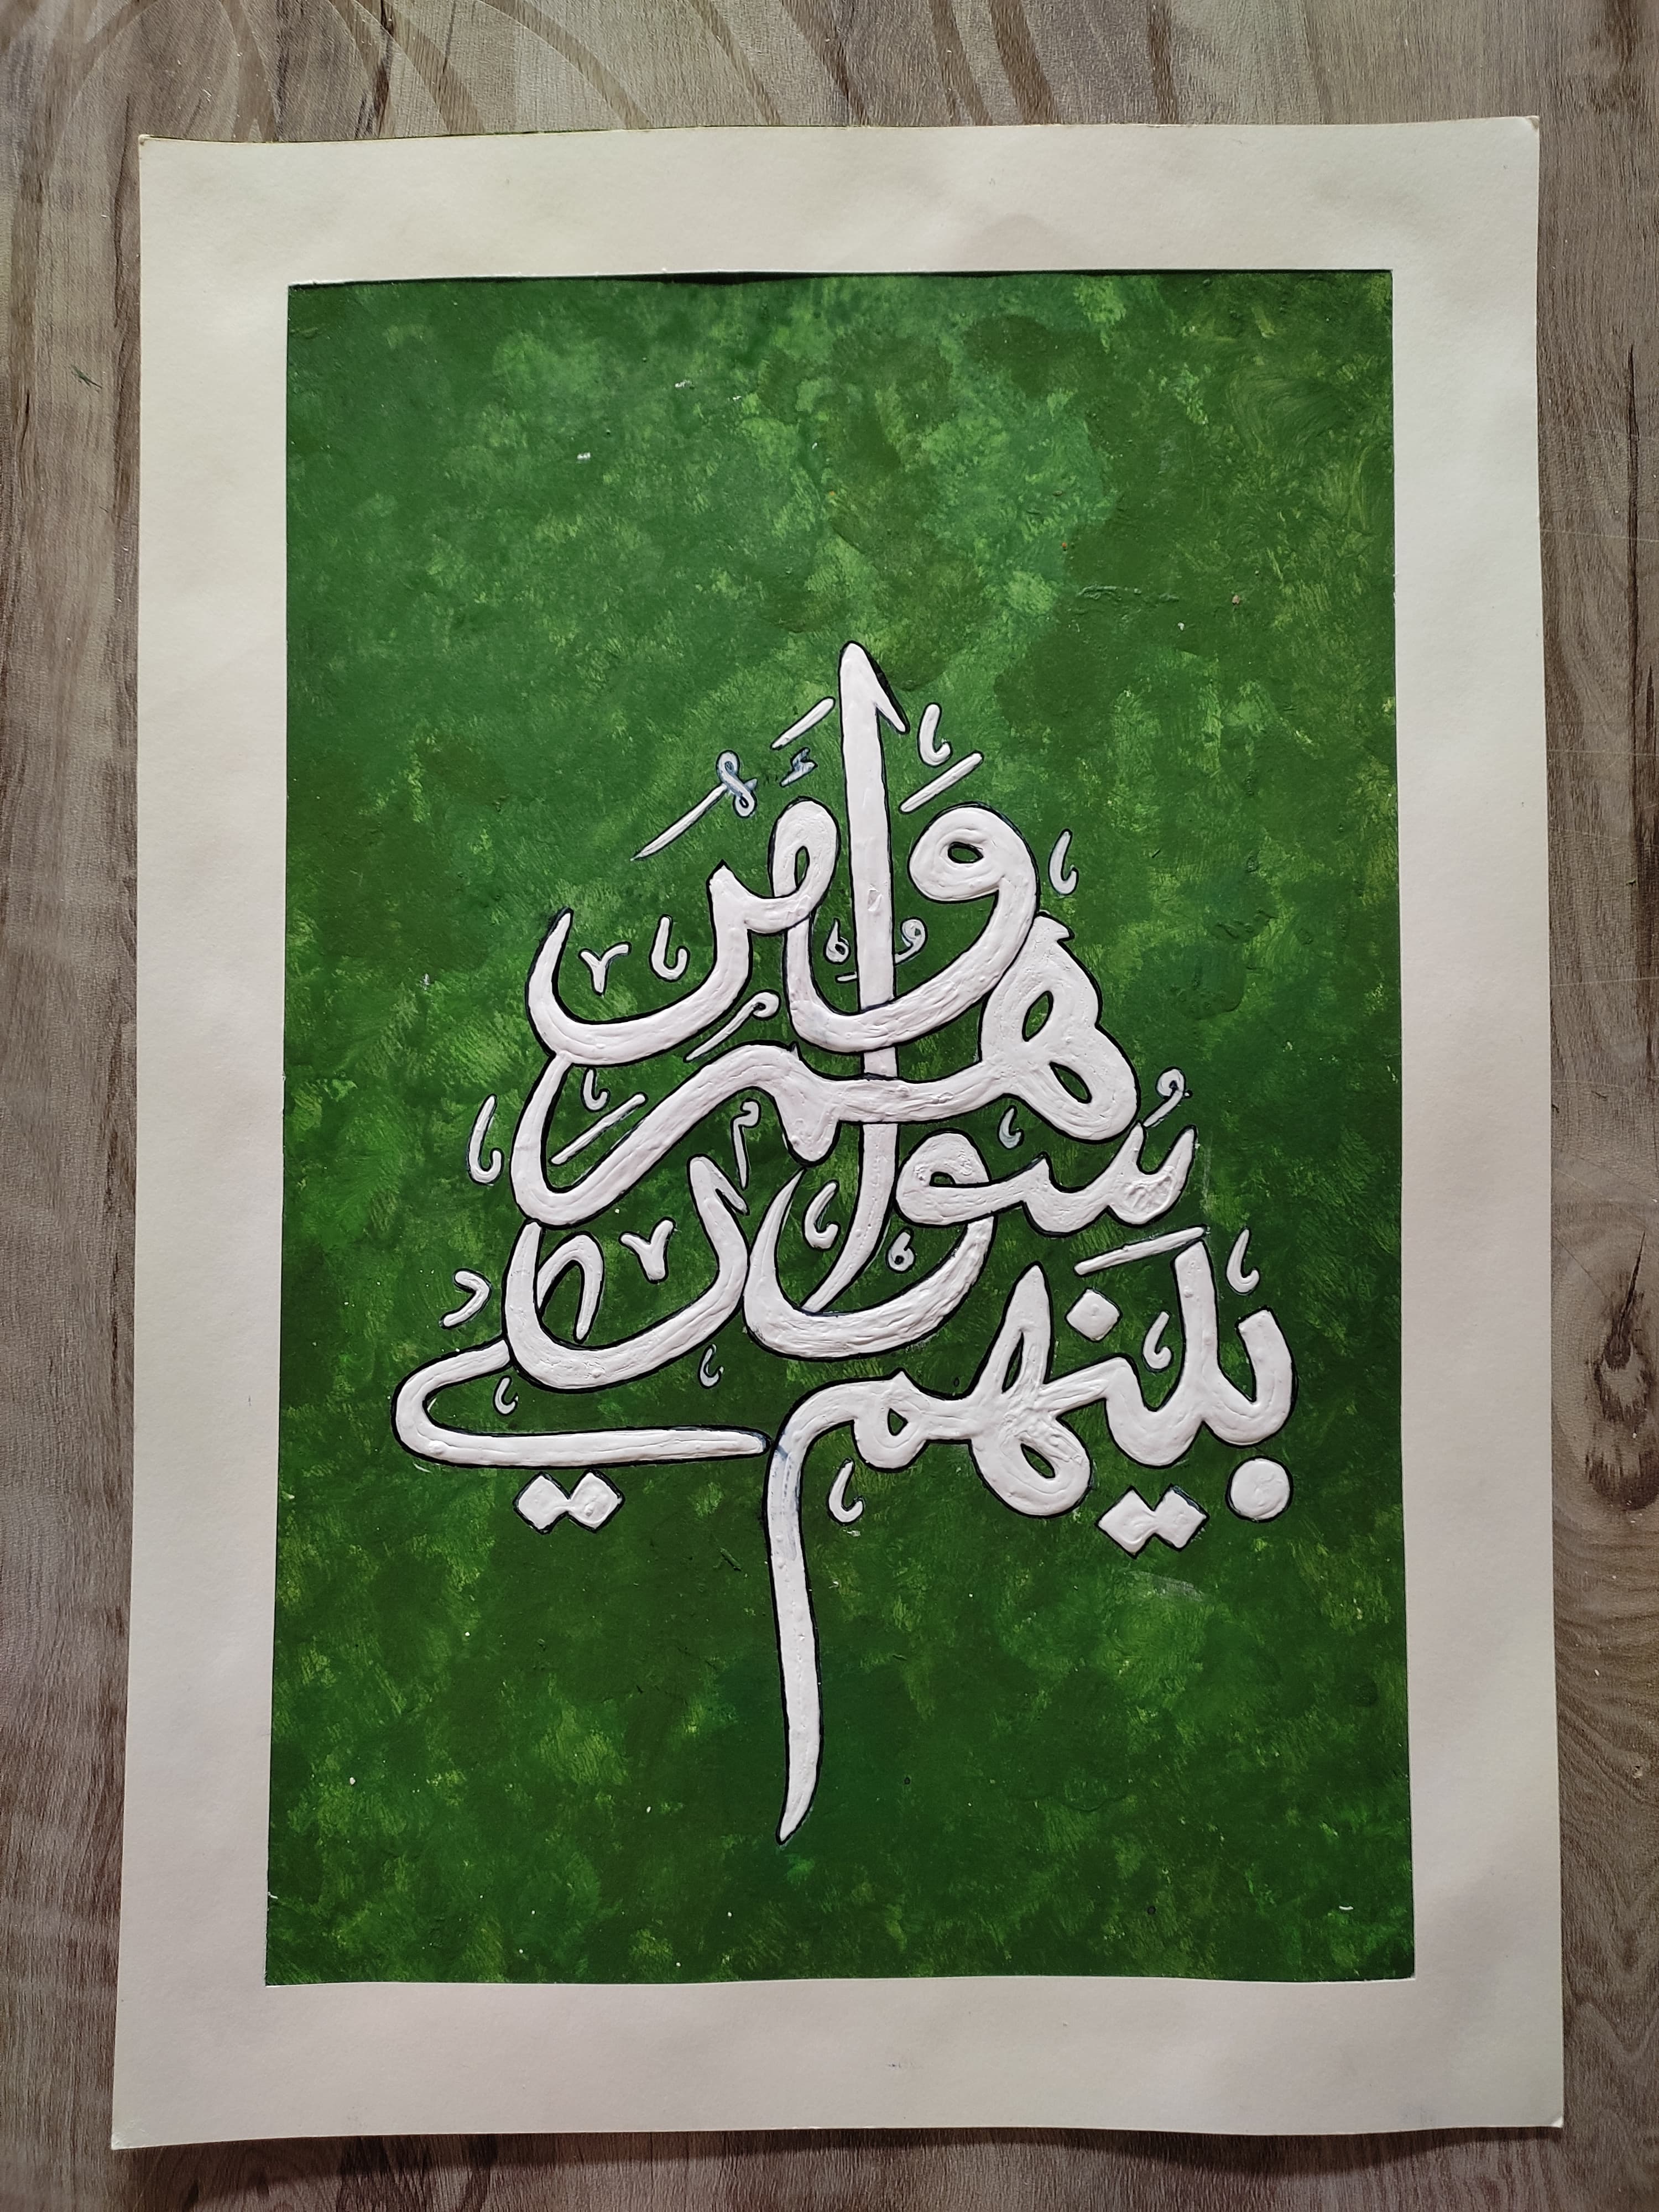 وَأَمْرُهُمْ
شُورَىٰ
بَيْنَهُمْ